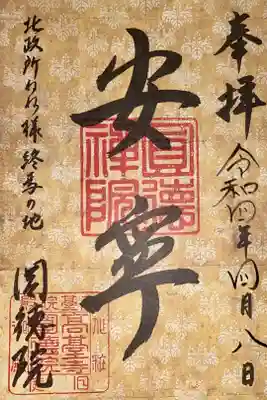 奉拝
令和四年四月八日
安寧
圓徳禅院
北政所ねね様終焉の地
圓徳院